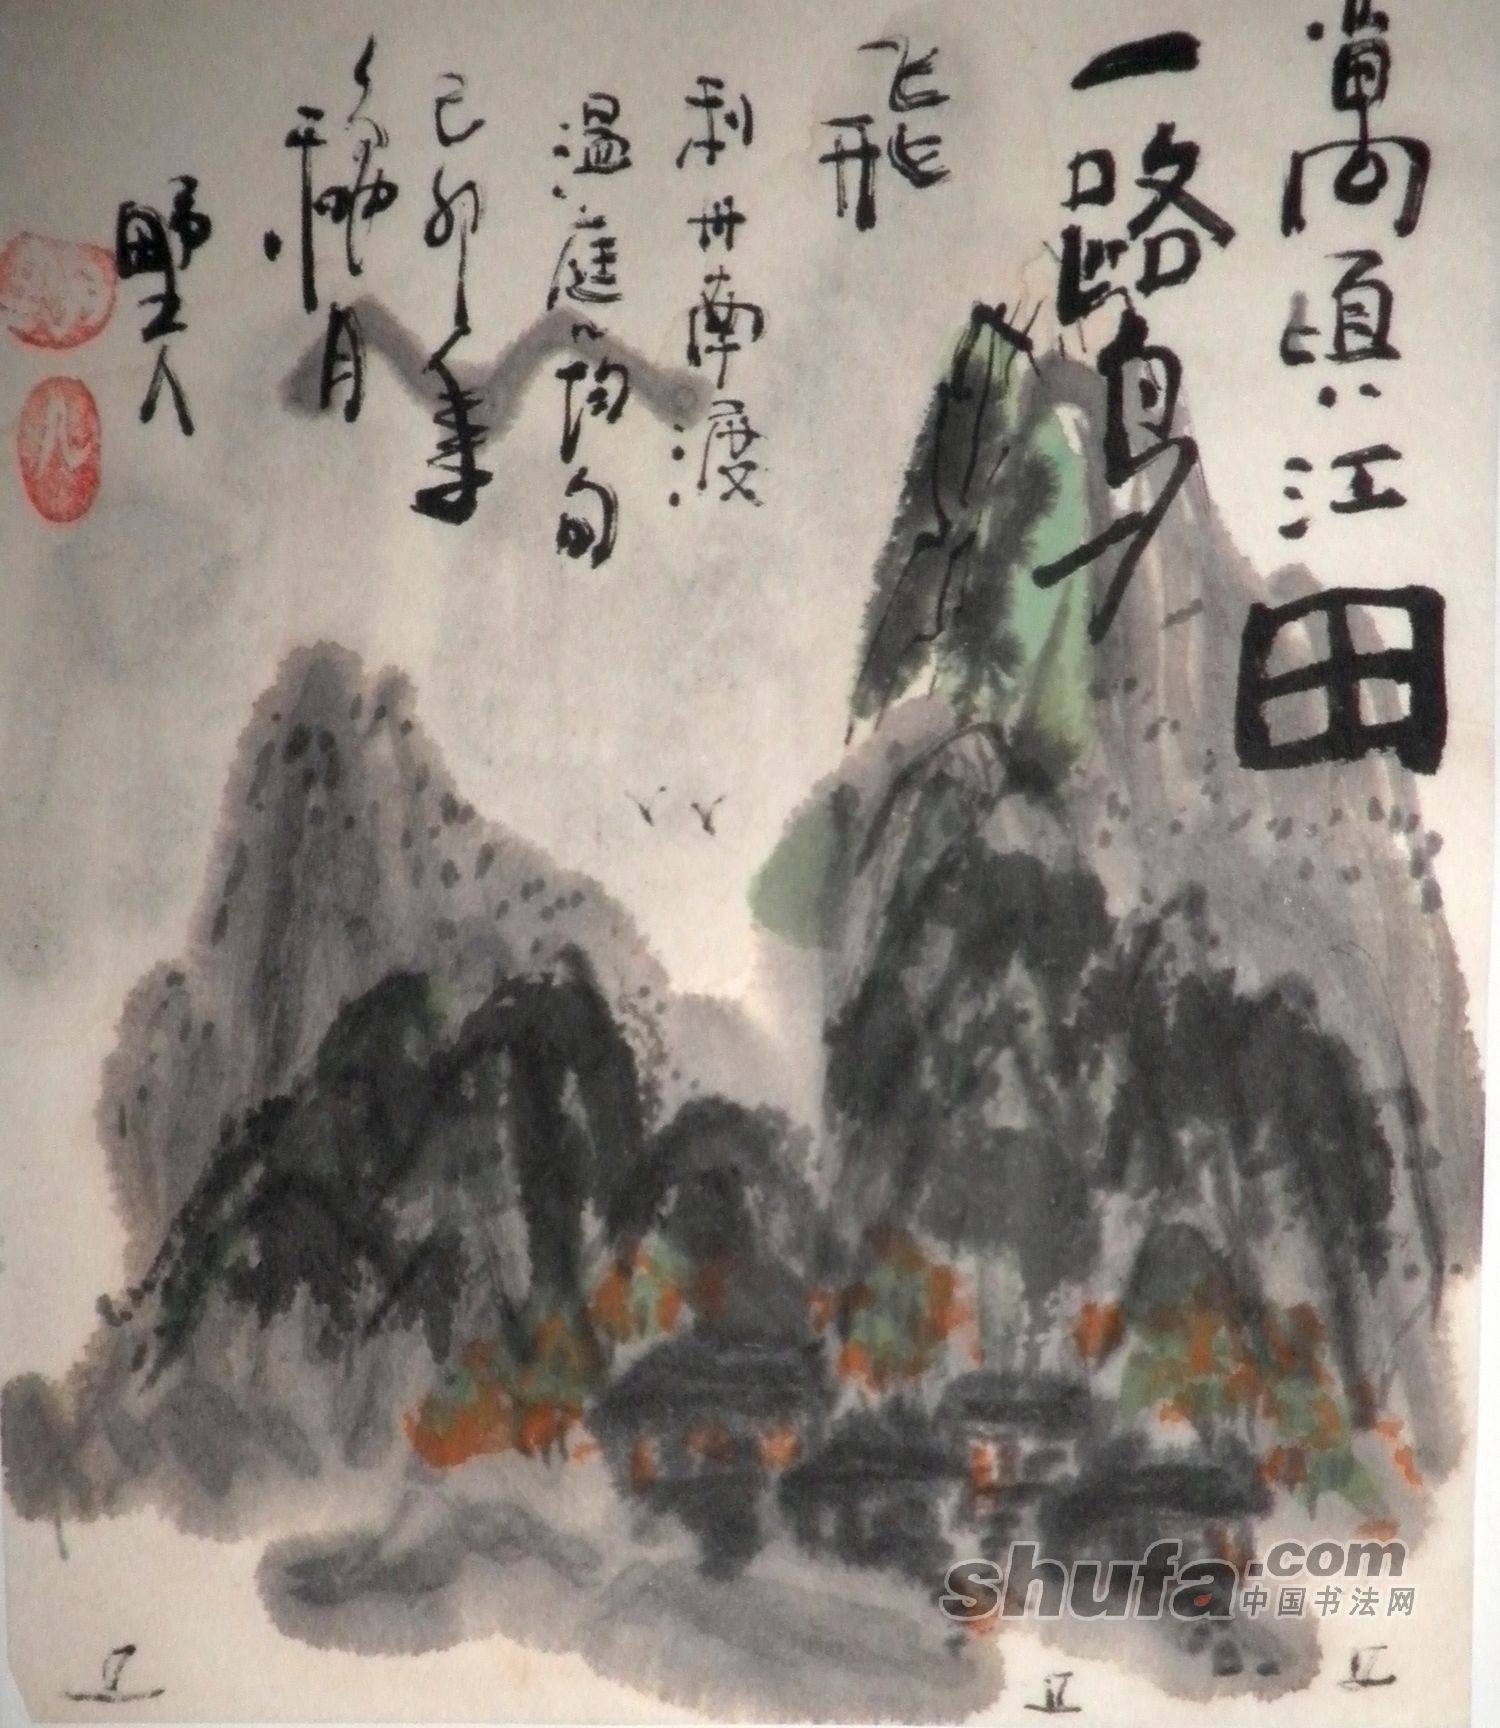 萬頃江田
一鷺
飛
利州南渡
温庭筠句
己卯年
月
野人
shufa.com
中国书法网